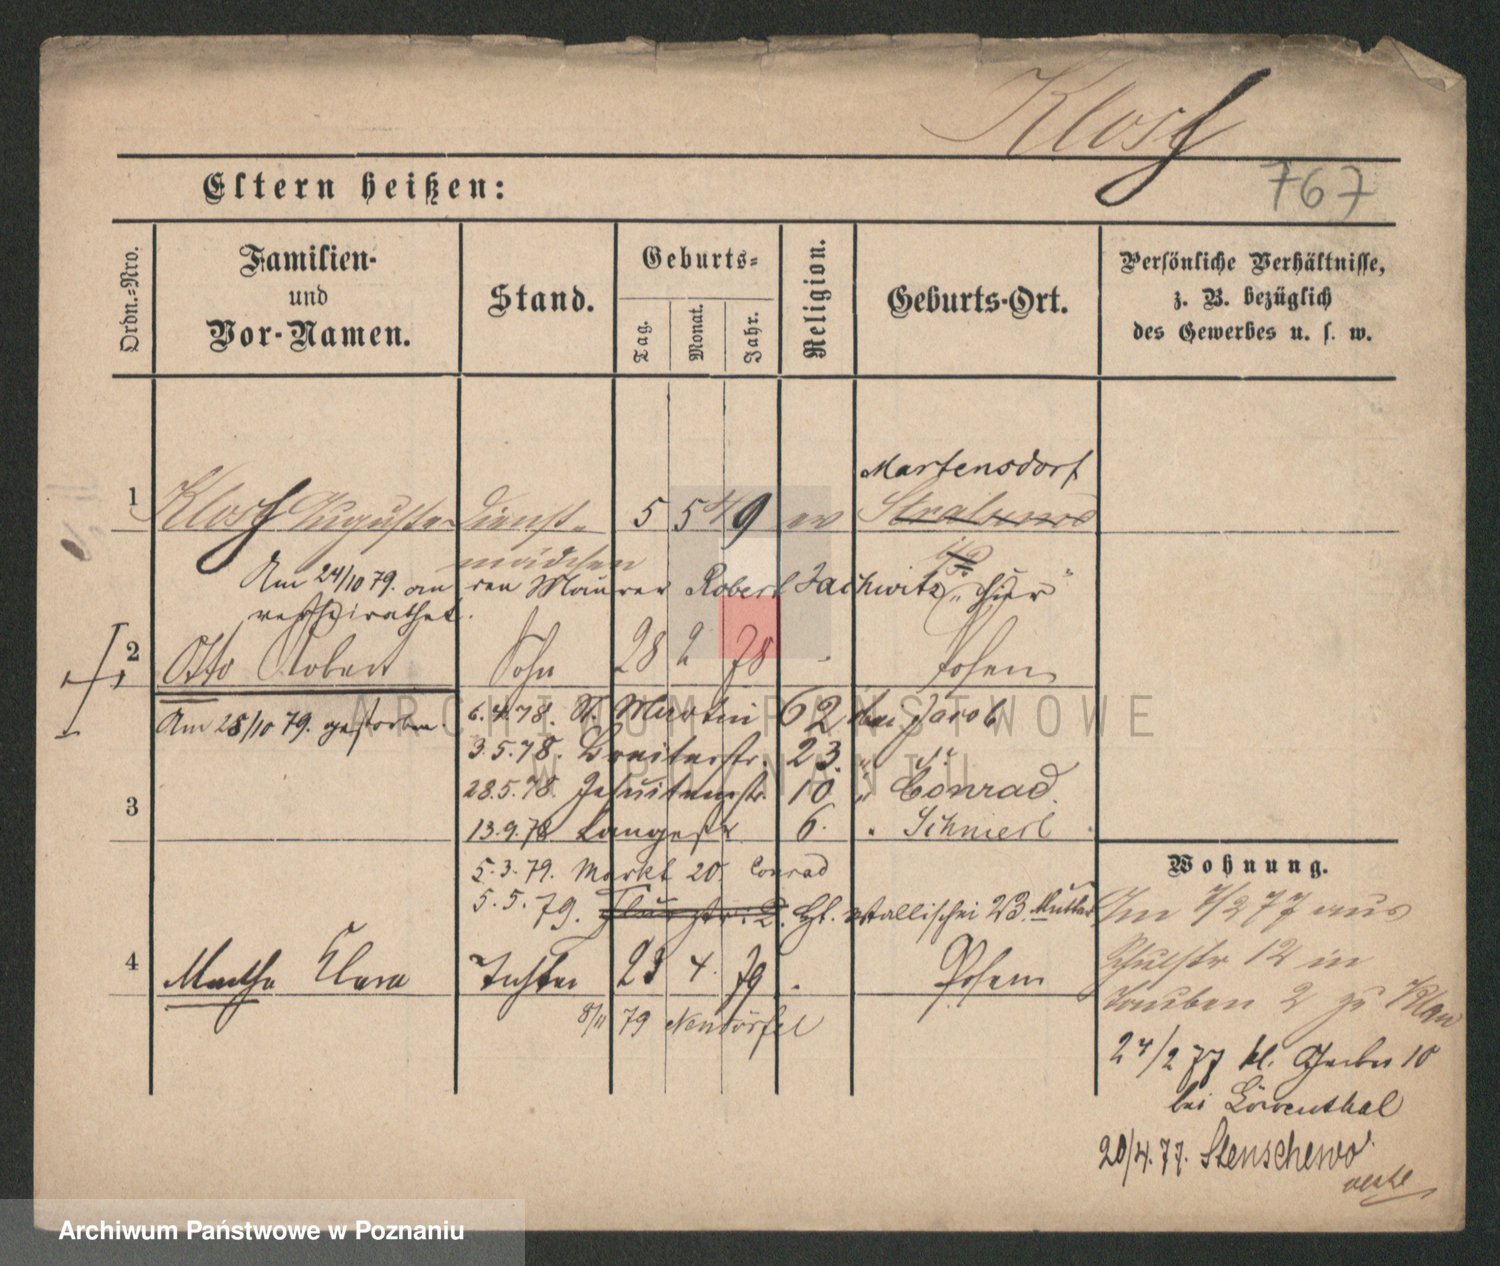 Klose
767
Eltern heißen:
Ordn.-Nro.
Familien-
und
Vor-Namen.
Stand.
Geburts-
Tag.
Monat.
Jahr.
Religion.
Geburts-Ort.
Persönliche Verhältnisse,
z. B. bezüglich
des Gewerbes u. s. w.
Martensdorf
1 Klose Auguste Dienst- 5 5 49 ev
mädchen
Am 24/10 79. an den Maurer Robert Jachwitz "hier"
verheirathet.
2 Otto Robert Sohn 28 2 78 Posen
Am 28/10 79. gestorben.
6.4.78. St. Martin 62 bei Jacob
3.5.78. Breitestr. 23. "
28.5.78. Jesuitenstr. 10. " Conrad.
3
13.9.78 Langestr 6. "
5.3.79. Markt 20. Conrad
5.5.79. Wallischei 23. Mutter
Wohnung.
Im 7/2 77 aus
Schulstr 12 in
Tauben 2 zu
4 Martha Clara Tochter 23 4. 79 Posen
8/11 79
24/2 77 kl. Gerber 10
bei Löwenthal
20/4.77. Stenschewo
ARCHIWUM PAŃSTWOWE
W POZNANIU
Archiwum Państwowe w Poznaniu